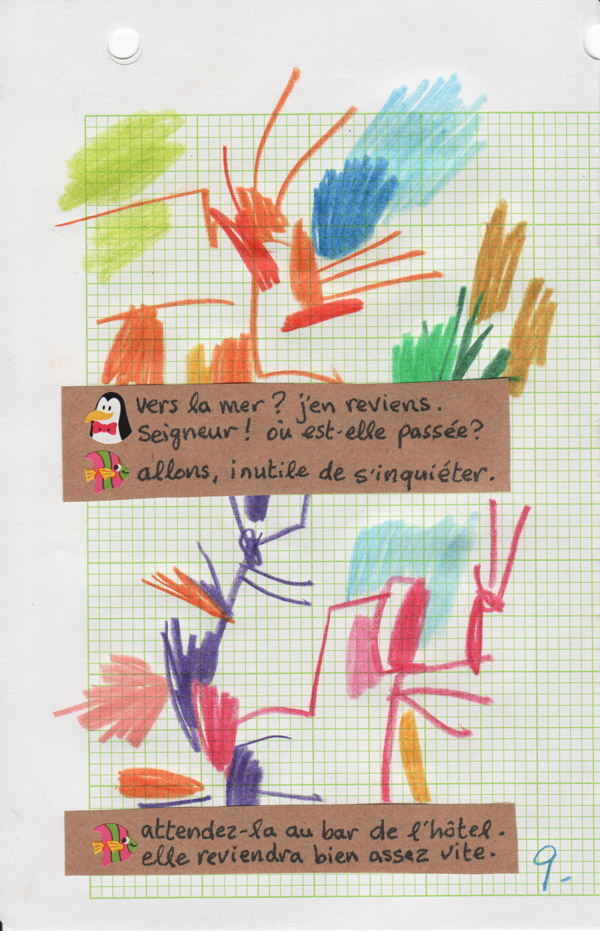 vers la mer ? j'en reviens.
Seigneur ! où est-elle passée ?
allons, inutile de s'inquiéter.
attendez-la au bar de l'hôtel.
elle reviendra bien assez vite.
9.-